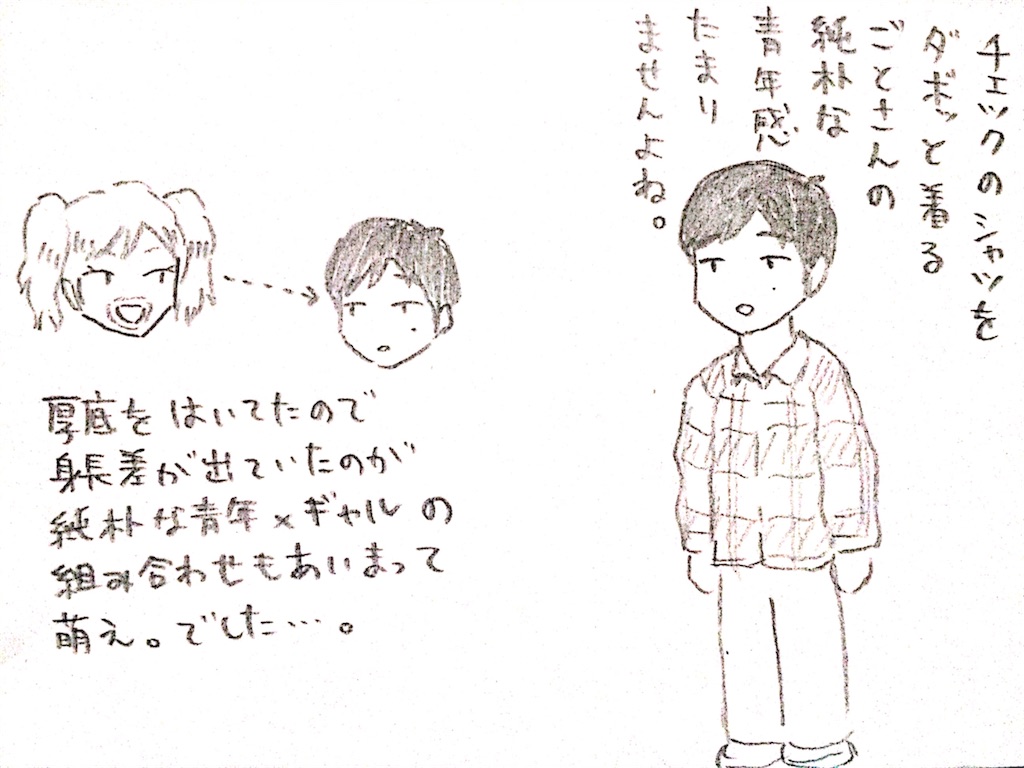 チェックのシャツを
ダボッと着る
ごとさんの
純朴な
青年感
たまり
ませんよね。
厚底をはいてたので
身長差が出ていたのが
純朴な青年×ギャルの
組み合わせもあいまって
萌え。でした…。